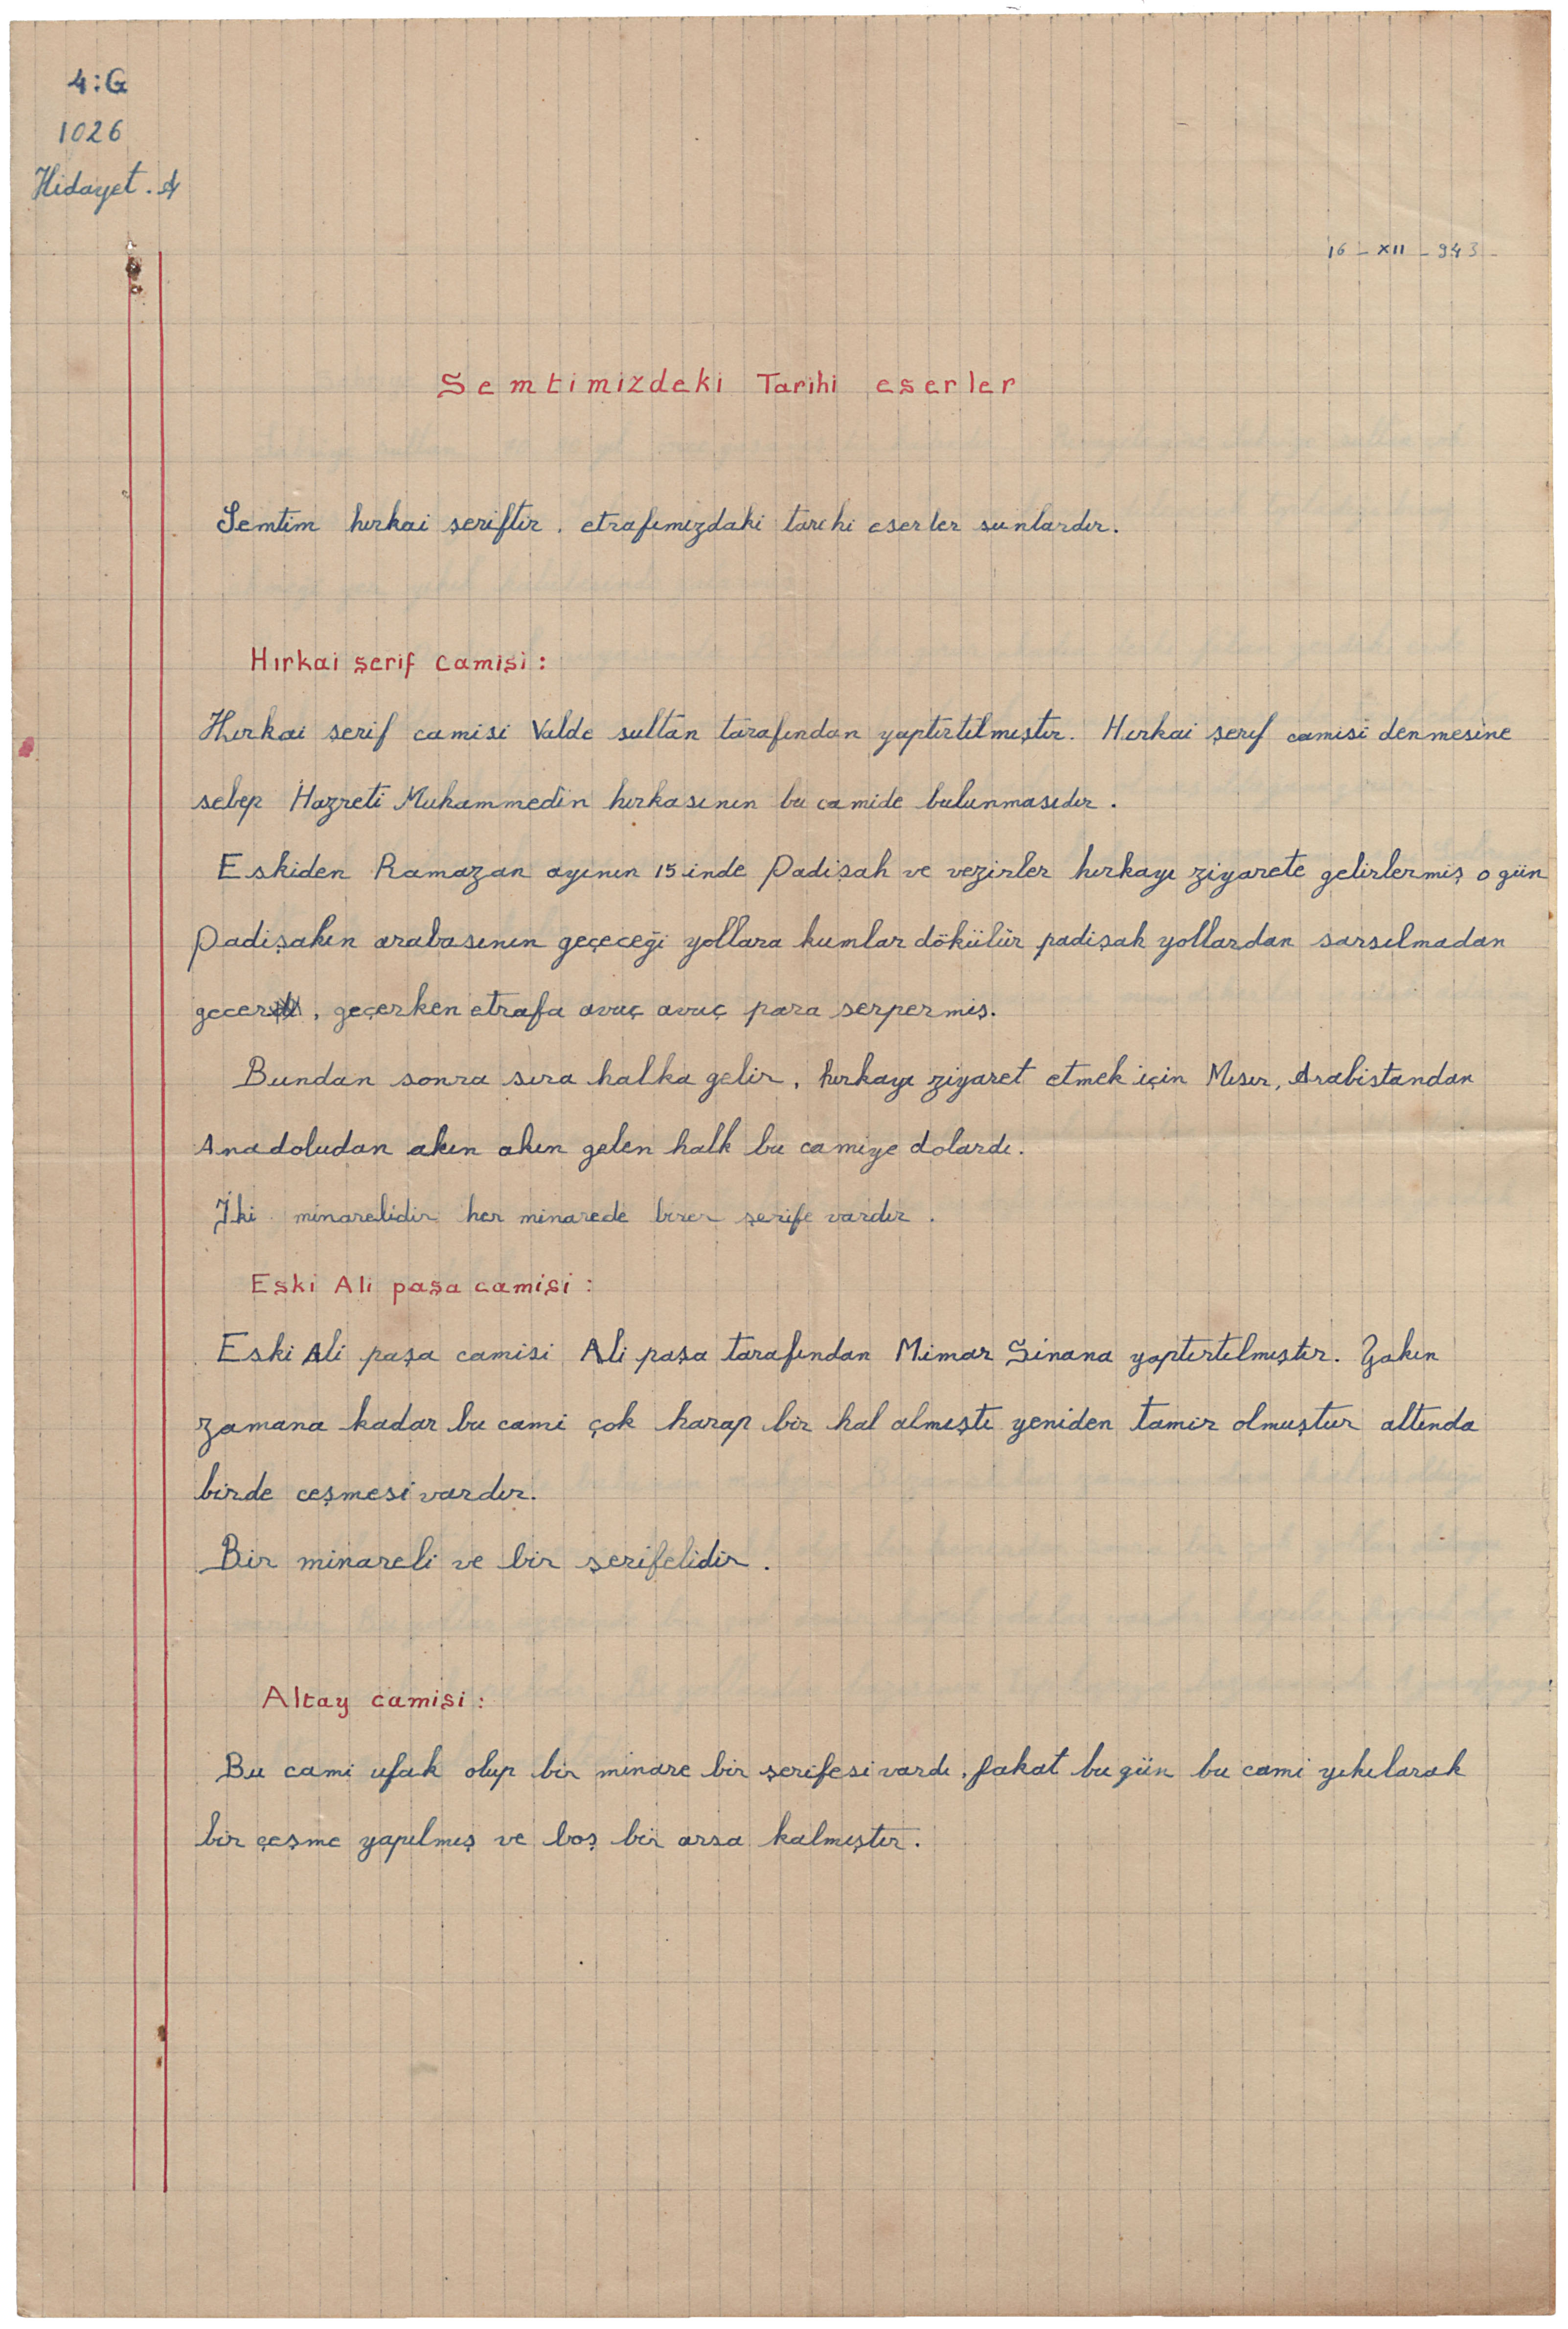 4:G
1026
Hidayet. A
16 - XII - 943 -
Semtimizdeki Tarihi eserler
Semtim hırkai şeriftir. etrafımızdaki tarihi eserler sunlardır.
Hırkai şerif camişi:
Hırkai serif camisi Valde sultan tarafından yaptırtılmıştır. Hırkai şerif camisi denmesine
sebep Hazreti Muhammedin hırkasının bu camide bulunmasıdır.
Eskiden Ramazan ayının 15 inde Padişah ve vezirler hırkayı ziyarete gelirlermiş o gün
Padişahın arabasının geçeceği yollara kumlar dökülür padişah yollardan sarsılmadan
geçer, geçerken etrafa avuç avuç para serpermiş.
Bundan sonra sıra halka gelir, hırkayı ziyaret etmek için Mısır, Arabistandan
Anadoludan akın akın gelen halk bu camiye dolardı.
İki minarelidir her minarede birer şerife vardır.
Eski Ali paşa camişi:
Eski Ali paşa camisi Ali paşa tarafından Mimar Sinana yaptırtılmıştır. Yakın
zamana kadar bu cami çok harap bir hal almıştı yeniden tamir olmuştur altında
birde ceşmesi vardır.
Bir minareli ve bir şerifelidir.
Altay camişi:
Bu cami ufak olup bir minare bir şerifesi vardı, fakat bugün bu cami yıkılarak
bir çeşme yapılmış ve boş bir arsa kalmıştır.